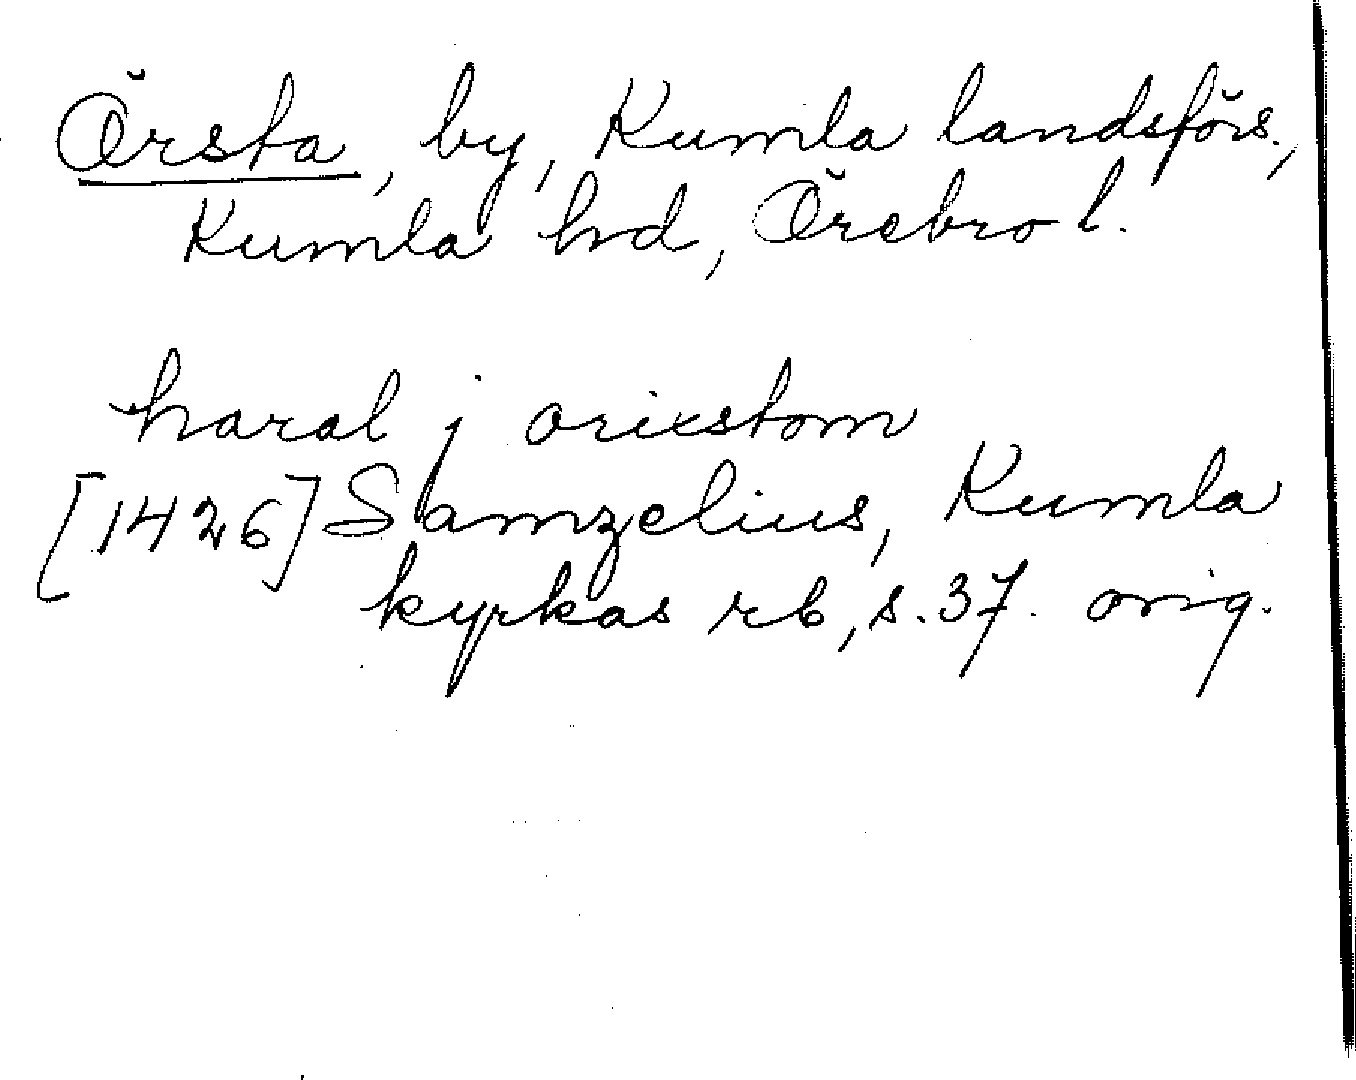 Örsta, by, Kumla landsförs.,
Kumla hd, Örebro l.
haral j orixstom
[1426] Samzelius, Kumla
kyrkas rb, s. 37. orig.